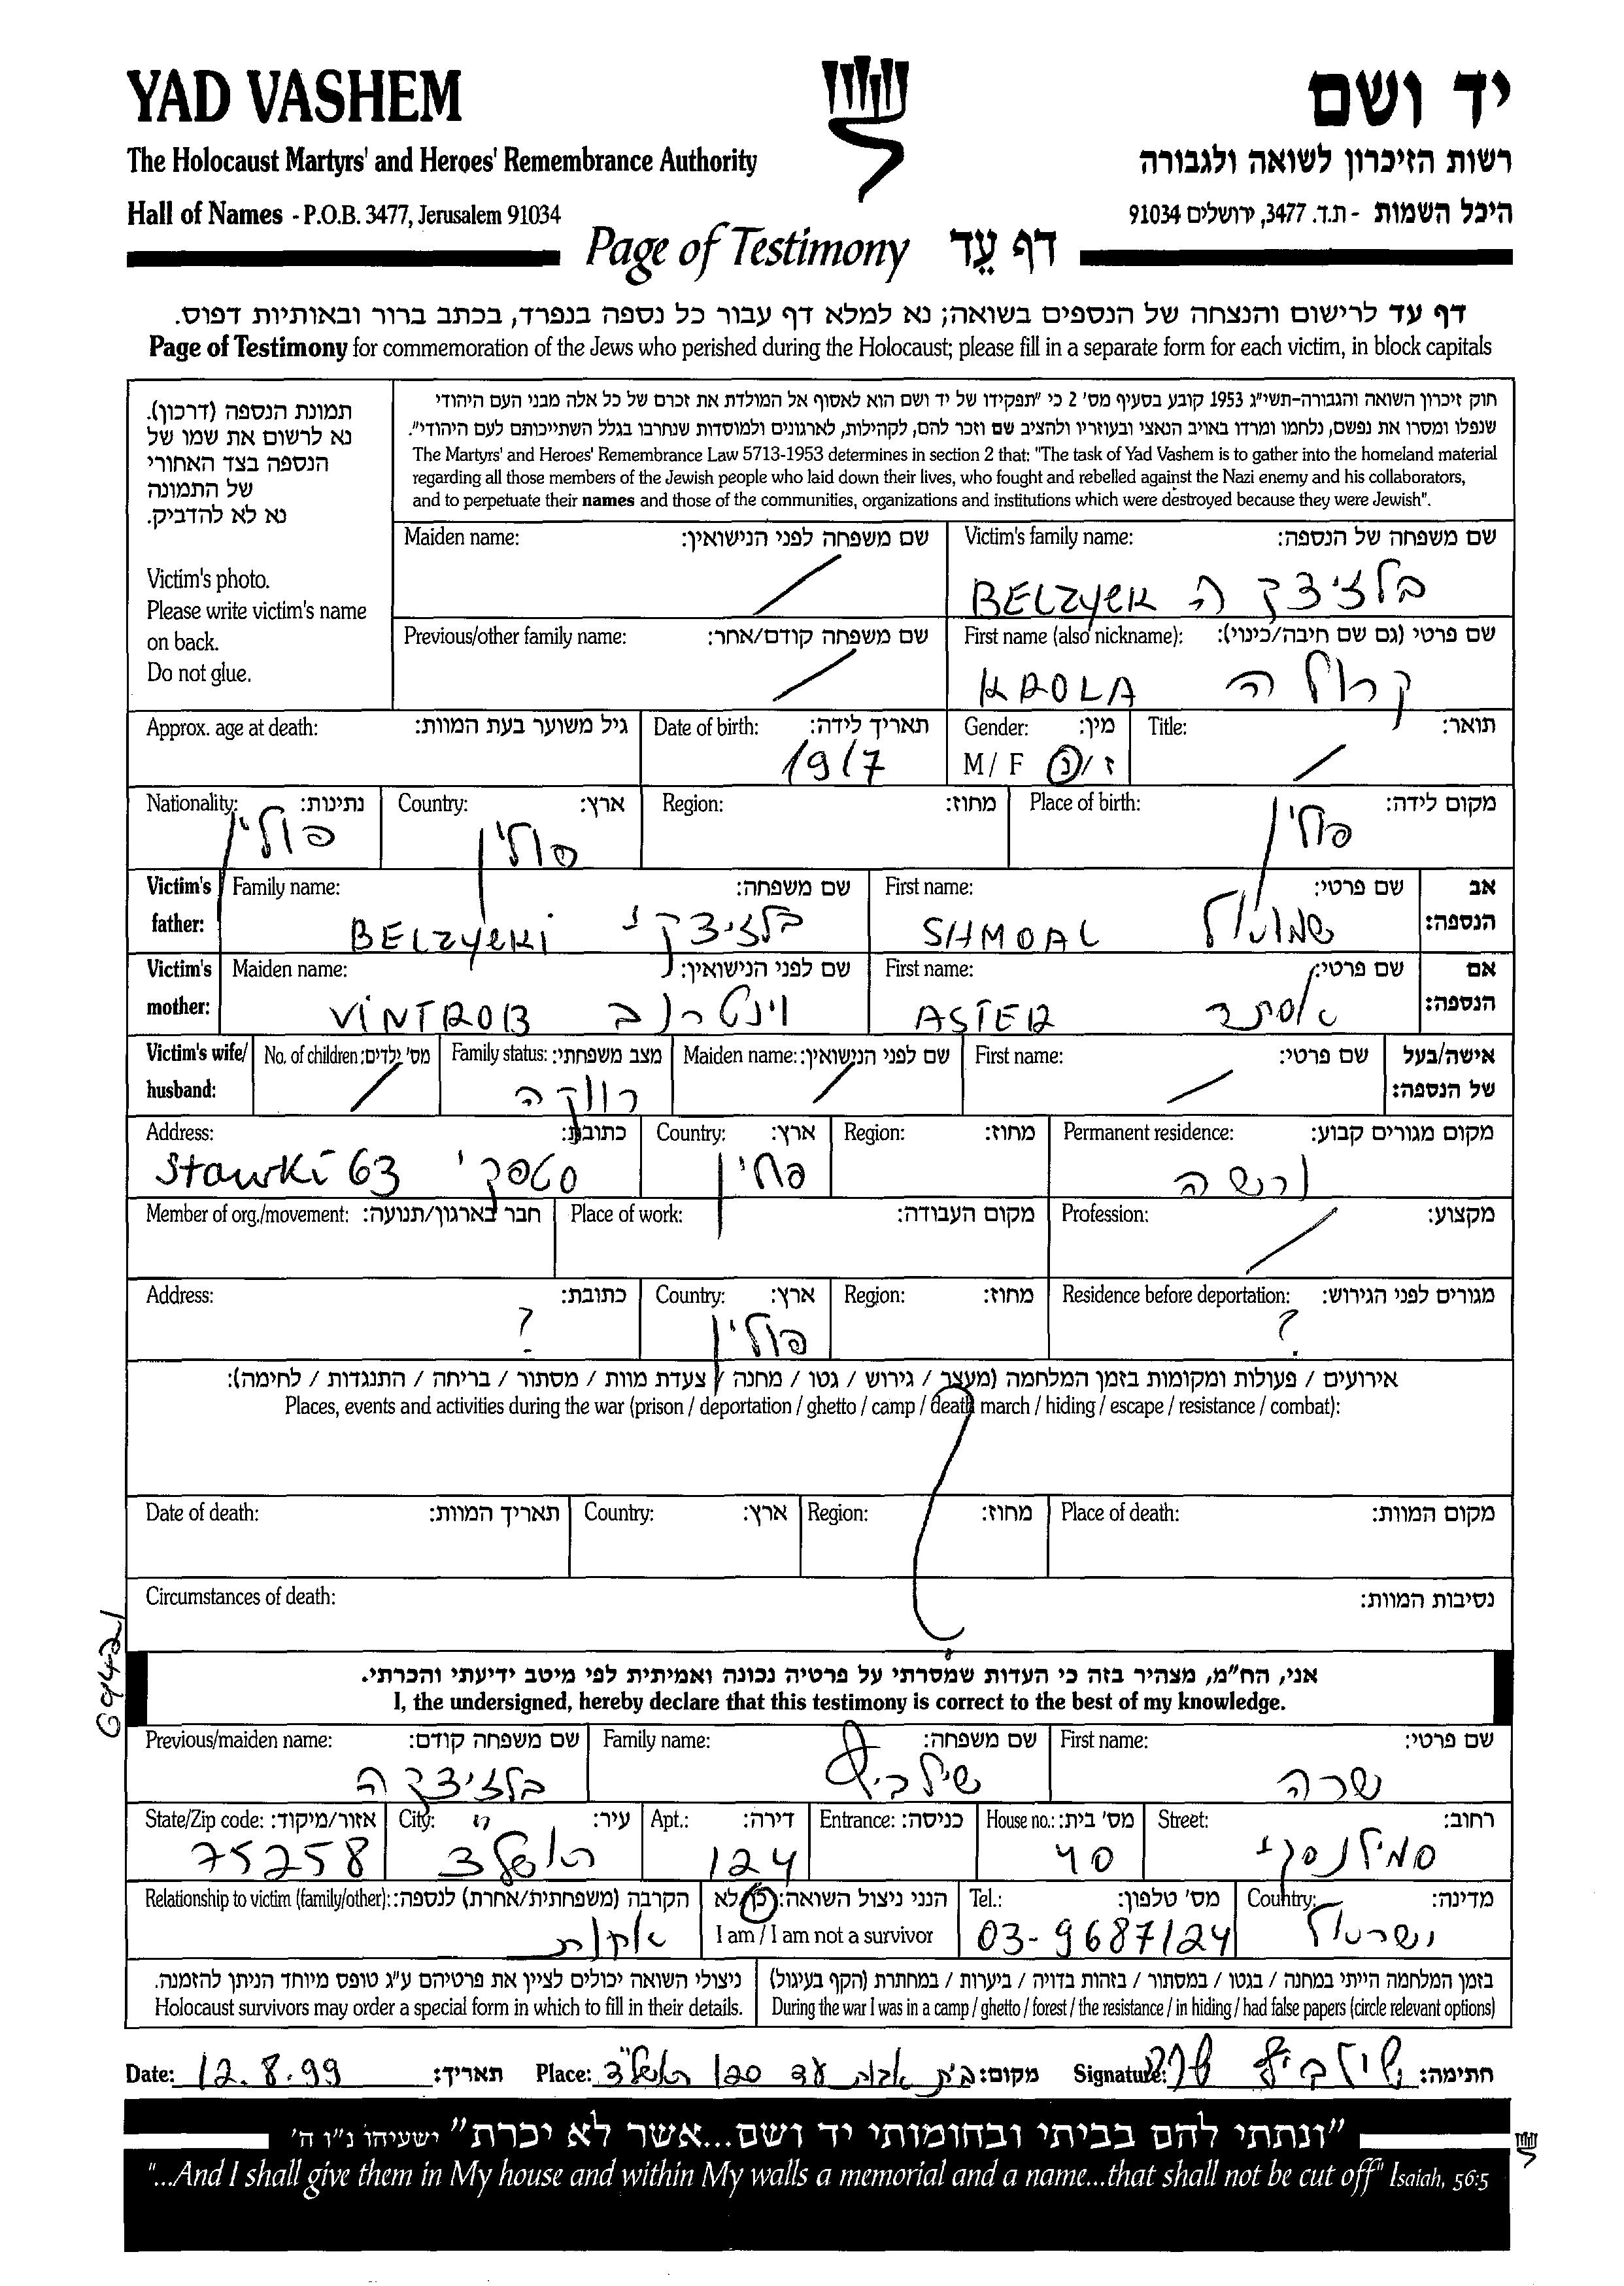 YAD VASHEM יד ושם
The Holocaust Martyrs' and Heroes' Remembrance Authority רשות הזיכרון לשואה ולגבורה
Hall of Names - P.O.B. 3477, Jerusalem 91034 היכל השמות - ת.ד. 3477, ירושלים 91034
Page of Testimony דף עֵד
דף עד לרישום והנצחה של הנספים בשואה; נא למלא דף עבור כל נספה בנפרד, בכתב ברור ובאותיות דפוס.
Page of Testimony for commemoration of the Jews who perished during the Holocaust; please fill in a separate form for each victim, in block capitals
תמונת הנספה (דרכון).
נא לרשום את שמו של
הנספה בצד האחורי
של התמונה
נא לא להדביק.
Victim's photo.
Please write victim's name
on back.
Do not glue.
חוק זיכרון השואה והגבורה-תשי"ג 1953 קובע בסעיף מס' 2 כי "תפקידו של יד ושם הוא לאסוף אל המולדת את זכרם של כל אלה מבני העם היהודי
שנפלו ומסרו את נפשם, נלחמו ומרדו באויב הנאצי ובעוזריו ולהציב שם וזכר להם, לקהילות, לארגונים ולמוסדות שנחרבו בגלל השתייכותם לעם היהודי".
The Martyrs' and Heroes' Remembrance Law 5713-1953 determines in section 2 that: "The task of Yad Vashem is to gather into the homeland material
regarding all those members of the Jewish people who laid down their lives, who fought and rebelled against the Nazi enemy and his collaborators,
and to perpetuate their names and those of the communities, organizations and institutions which were destroyed because they were Jewish".
Maiden name: שם משפחה לפני הנישואין: Victim's family name: שם משפחה של הנספה:
/ BELZYCK בלציצקה
Previous/other family name: שם משפחה קודם/אחר: First name (also nickname): שם פרטי (גם שם חיבה/כינוי):
/ KROLA קרולה
Approx. age at death: גיל משוער בעת המוות: Date of birth: תאריך לידה: Gender: מין: Title: תואר:
1917 M / F ז/נ /
Nationality: נתינות: Country: ארץ: Region: מחוז: Place of birth: מקום לידה:
פולין פולין פולין
Victim's father: Family name: שם משפחה: First name: שם פרטי: אב הנספה:
BELZYCKI בלציצקי SHMOAL שמואל
Victim's mother: Maiden name: שם לפני הנישואין: First name: שם פרטי: אם הנספה:
VINTROB וינטרוב ASTER אסתר
Victim's wife/ husband: No. of children: מס' ילדים: Family status: מצב משפחתי: Maiden name: שם לפני הנישואין: First name: שם פרטי: אישה/בעל של הנספה:
/ רווקה / /
Address: כתובת: Country: ארץ: Region: מחוז: Permanent residence: מקום מגורים קבוע:
Stawki 63 סטפקי פולין ורשה
Member of org./movement: חבר בארגון/תנועה: Place of work: מקום העבודה: Profession: מקצוע:
/
Address: כתובת: Country: ארץ: Region: מחוז: Residence before deportation: מגורים לפני הגירוש:
? פולין ?
אירועים / פעולות ומקומות בזמן המלחמה (מעצר / גירוש / גטו / מחנה / צעדת מוות / מסתור / בריחה / התנגדות / לחימה):
Places, events and activities during the war (prison / deportation / ghetto / camp / death march / hiding / escape / resistance / combat):
?
Date of death: תאריך המוות: Country: ארץ: Region: מחוז: Place of death: מקום המוות:
Circumstances of death: נסיבות המוות:
אני, הח"מ, מצהיר בזה כי העדות שמסרתי על פרטיה נכונה ואמיתית לפי מיטב ידיעתי והכרתי.
I, the undersigned, hereby declare that this testimony is correct to the best of my knowledge.
Previous/maiden name: שם משפחה קודם: Family name: שם משפחה: First name: שם פרטי:
בלציצקה שילביף שרה
State/Zip code: אזור/מיקוד: City: עיר: Apt.: דירה: Entrance: כניסה: House no.: מס' בית: Street: רחוב:
75258 ראשל"צ 124 40 סמילנסקי
Relationship to victim (family/other): הקרבה (משפחתית/אחרת) לנספה: הנני ניצול השואה: כן/לא Tel.: מס' טלפון: Country: מדינה:
אחות I am / I am not a survivor 03-9687124 ישראל
ניצולי השואה יכולים לציין את פרטיהם ע"ג טופס מיוחד הניתן להזמנה. בזמן המלחמה הייתי במחנה / בגטו / במסתור / בזהות בדויה / ביערות / במחתרת (הקף בעיגול)
Holocaust survivors may order a special form in which to fill in their details. During the war I was in a camp / ghetto / forest / the resistance / in hiding / had false papers (circle relevant options)
Date: 12.8.99 תאריך: Place: בית אבות עד 120 ראשל"צ מקום: Signature: שילביף שרה חתימה:
"ונתתי להם בביתי ובחומותי יד ושם...אשר לא יכרת" ישעיהו נ"ו ה'
"...And I shall give them in My house and within My walls a memorial and a name...that shall not be cut off" Isaiah, 56:5